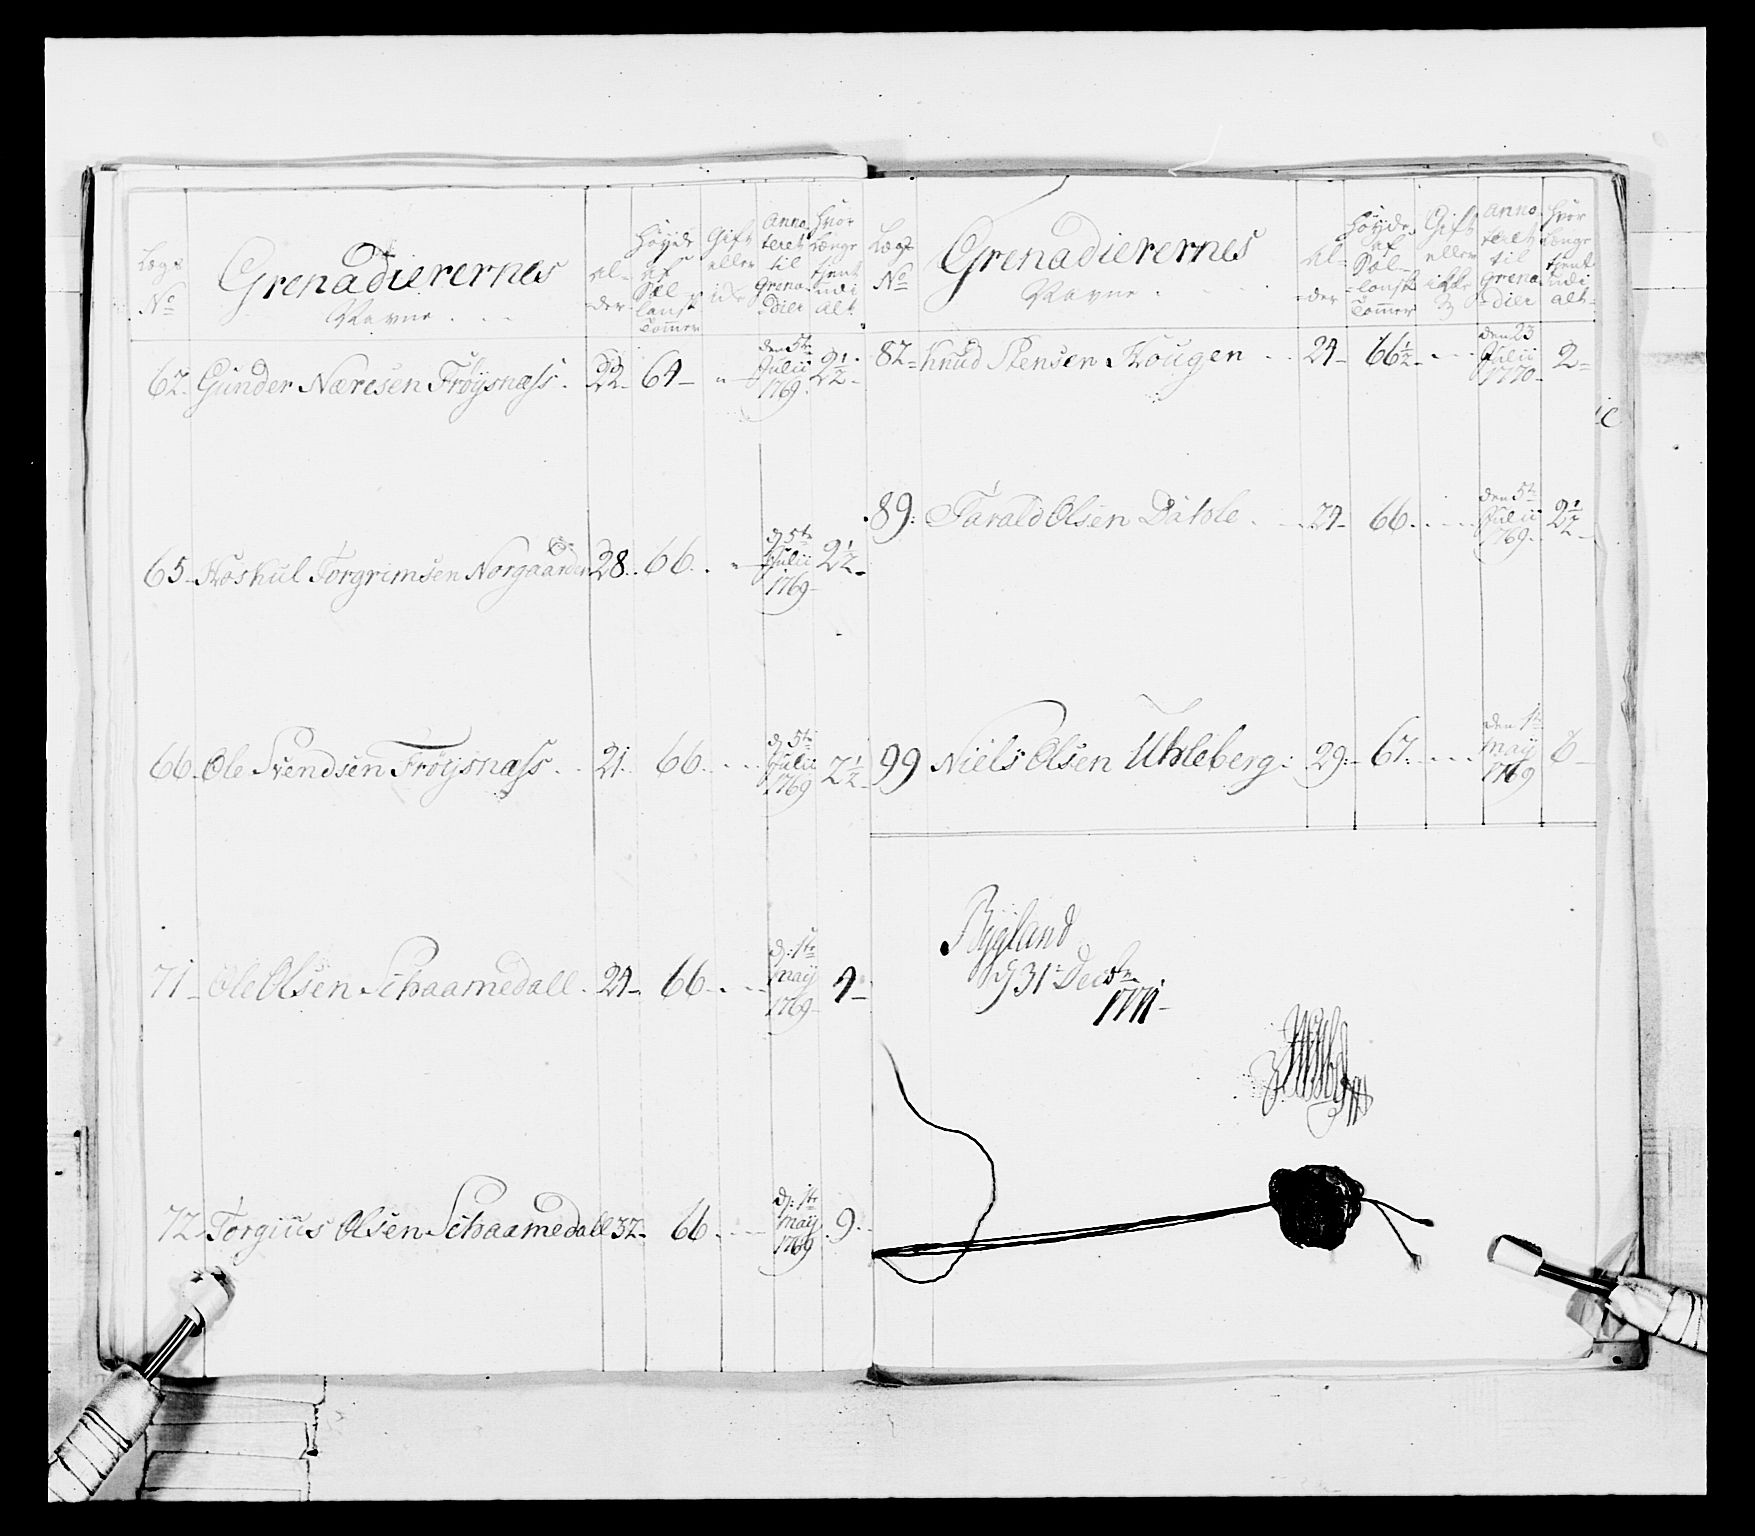 Lægs No
Grenadierernes Navne
Al-der
Høyde af Sål-lansk Tommer
Gift eller ikke
Anno-teret til Grena-dier
Hvor længe tient udi alt
62. Gunder Næresen Frøysnæss. 22. 64 „ den 5te Julii 1769. 2 1/2.
65. Torgrimsen Norgaarden 28. 66. „ d. 5te Julii 1769 2 1/2.
66. Ole Svendsen Frøysnæss. 21. 66. d. 5te Julii 1769 2 1/2
71. Ole Olsen Schaamedall. 24. 66. d: 1te may 1769 9
72. Torgius Olsen Schaamedall 32. 66. d: 1te may 1769 9.
Lægs No
Grenadierernes Navne
Al-der
Høyde af Sål-lansk Tommer
Gift eller ikke
Anno-teret til Grena-dier
Hvor længe tient udi alt
82. Knud Stensen Hougen 24. 66 1/2 den 23 Julii 1770 2
89. Tarald Olsen 24. 66. den 5te Julii 1769. 2 1/2
99 Niels Olsen Uhleberg. 29. 67. den 1te may 1769 6
Bygland
d 31te Decbr
1771